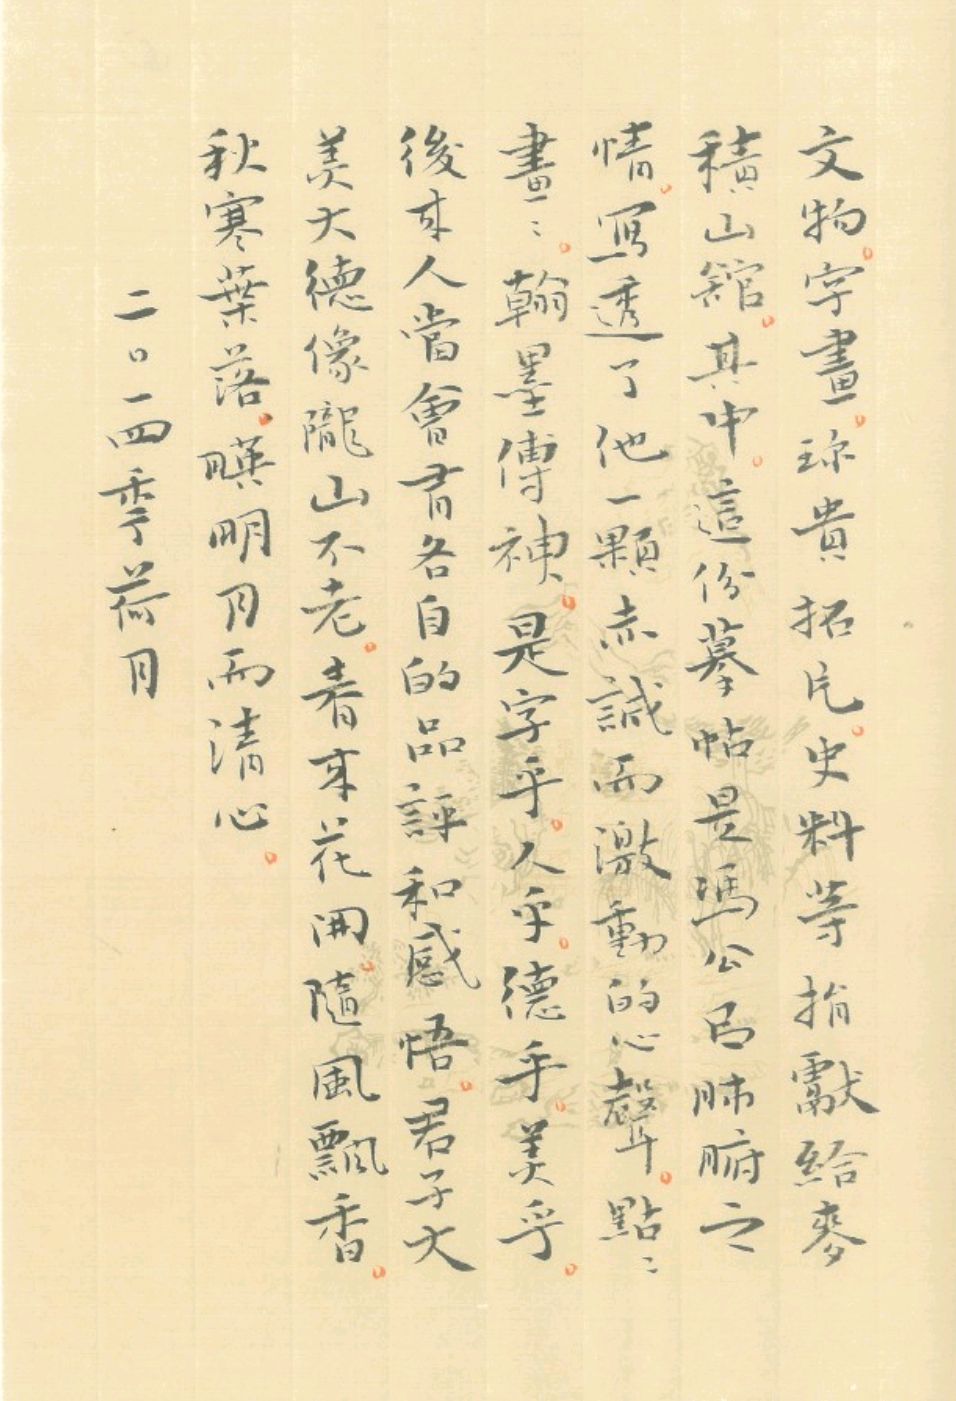 文物。字畫。珎貴拓片。史料等捐獻給麥
積山舘。其中。這份摹帖是馮公呂肺腑之
情。寫透了他一顆赤誠而激動的心聲。點〻
畫〻。翰墨傳神。是字乎。人乎。德乎。美乎。
後來人當會有各自的品評和感悟。君子大
美大德像隴山不老。春來花開。隨風飄香。
秋寒葉落。暎明月而清心。
二〇一四季荷月